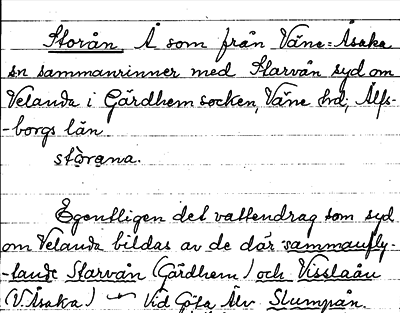 Storån Å som från Väne-Åsaka
sn sammanrinner med Starvån syd om
Velanda i Gärdhem socken, Väne hd, Älfs-
-borgs län.
stòrana.
Egentligen det vattendrag som syd
om Velanda bildas av de där sammanfly-
-tande Starvån (Gärdhem) och Visslaån
(V. Åsaka) — Vid Göta Älv Slumpån.